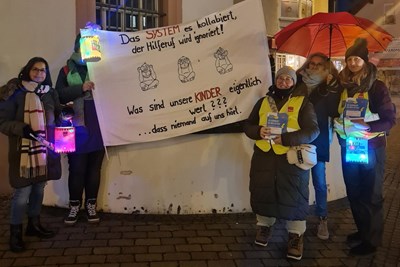 Das SYSTEM es kollabiert,
der Hilferuf wird ignoriert!
Was sind unsere KINDER eigentlich
wert ???
...dass niemand auf uns hört.